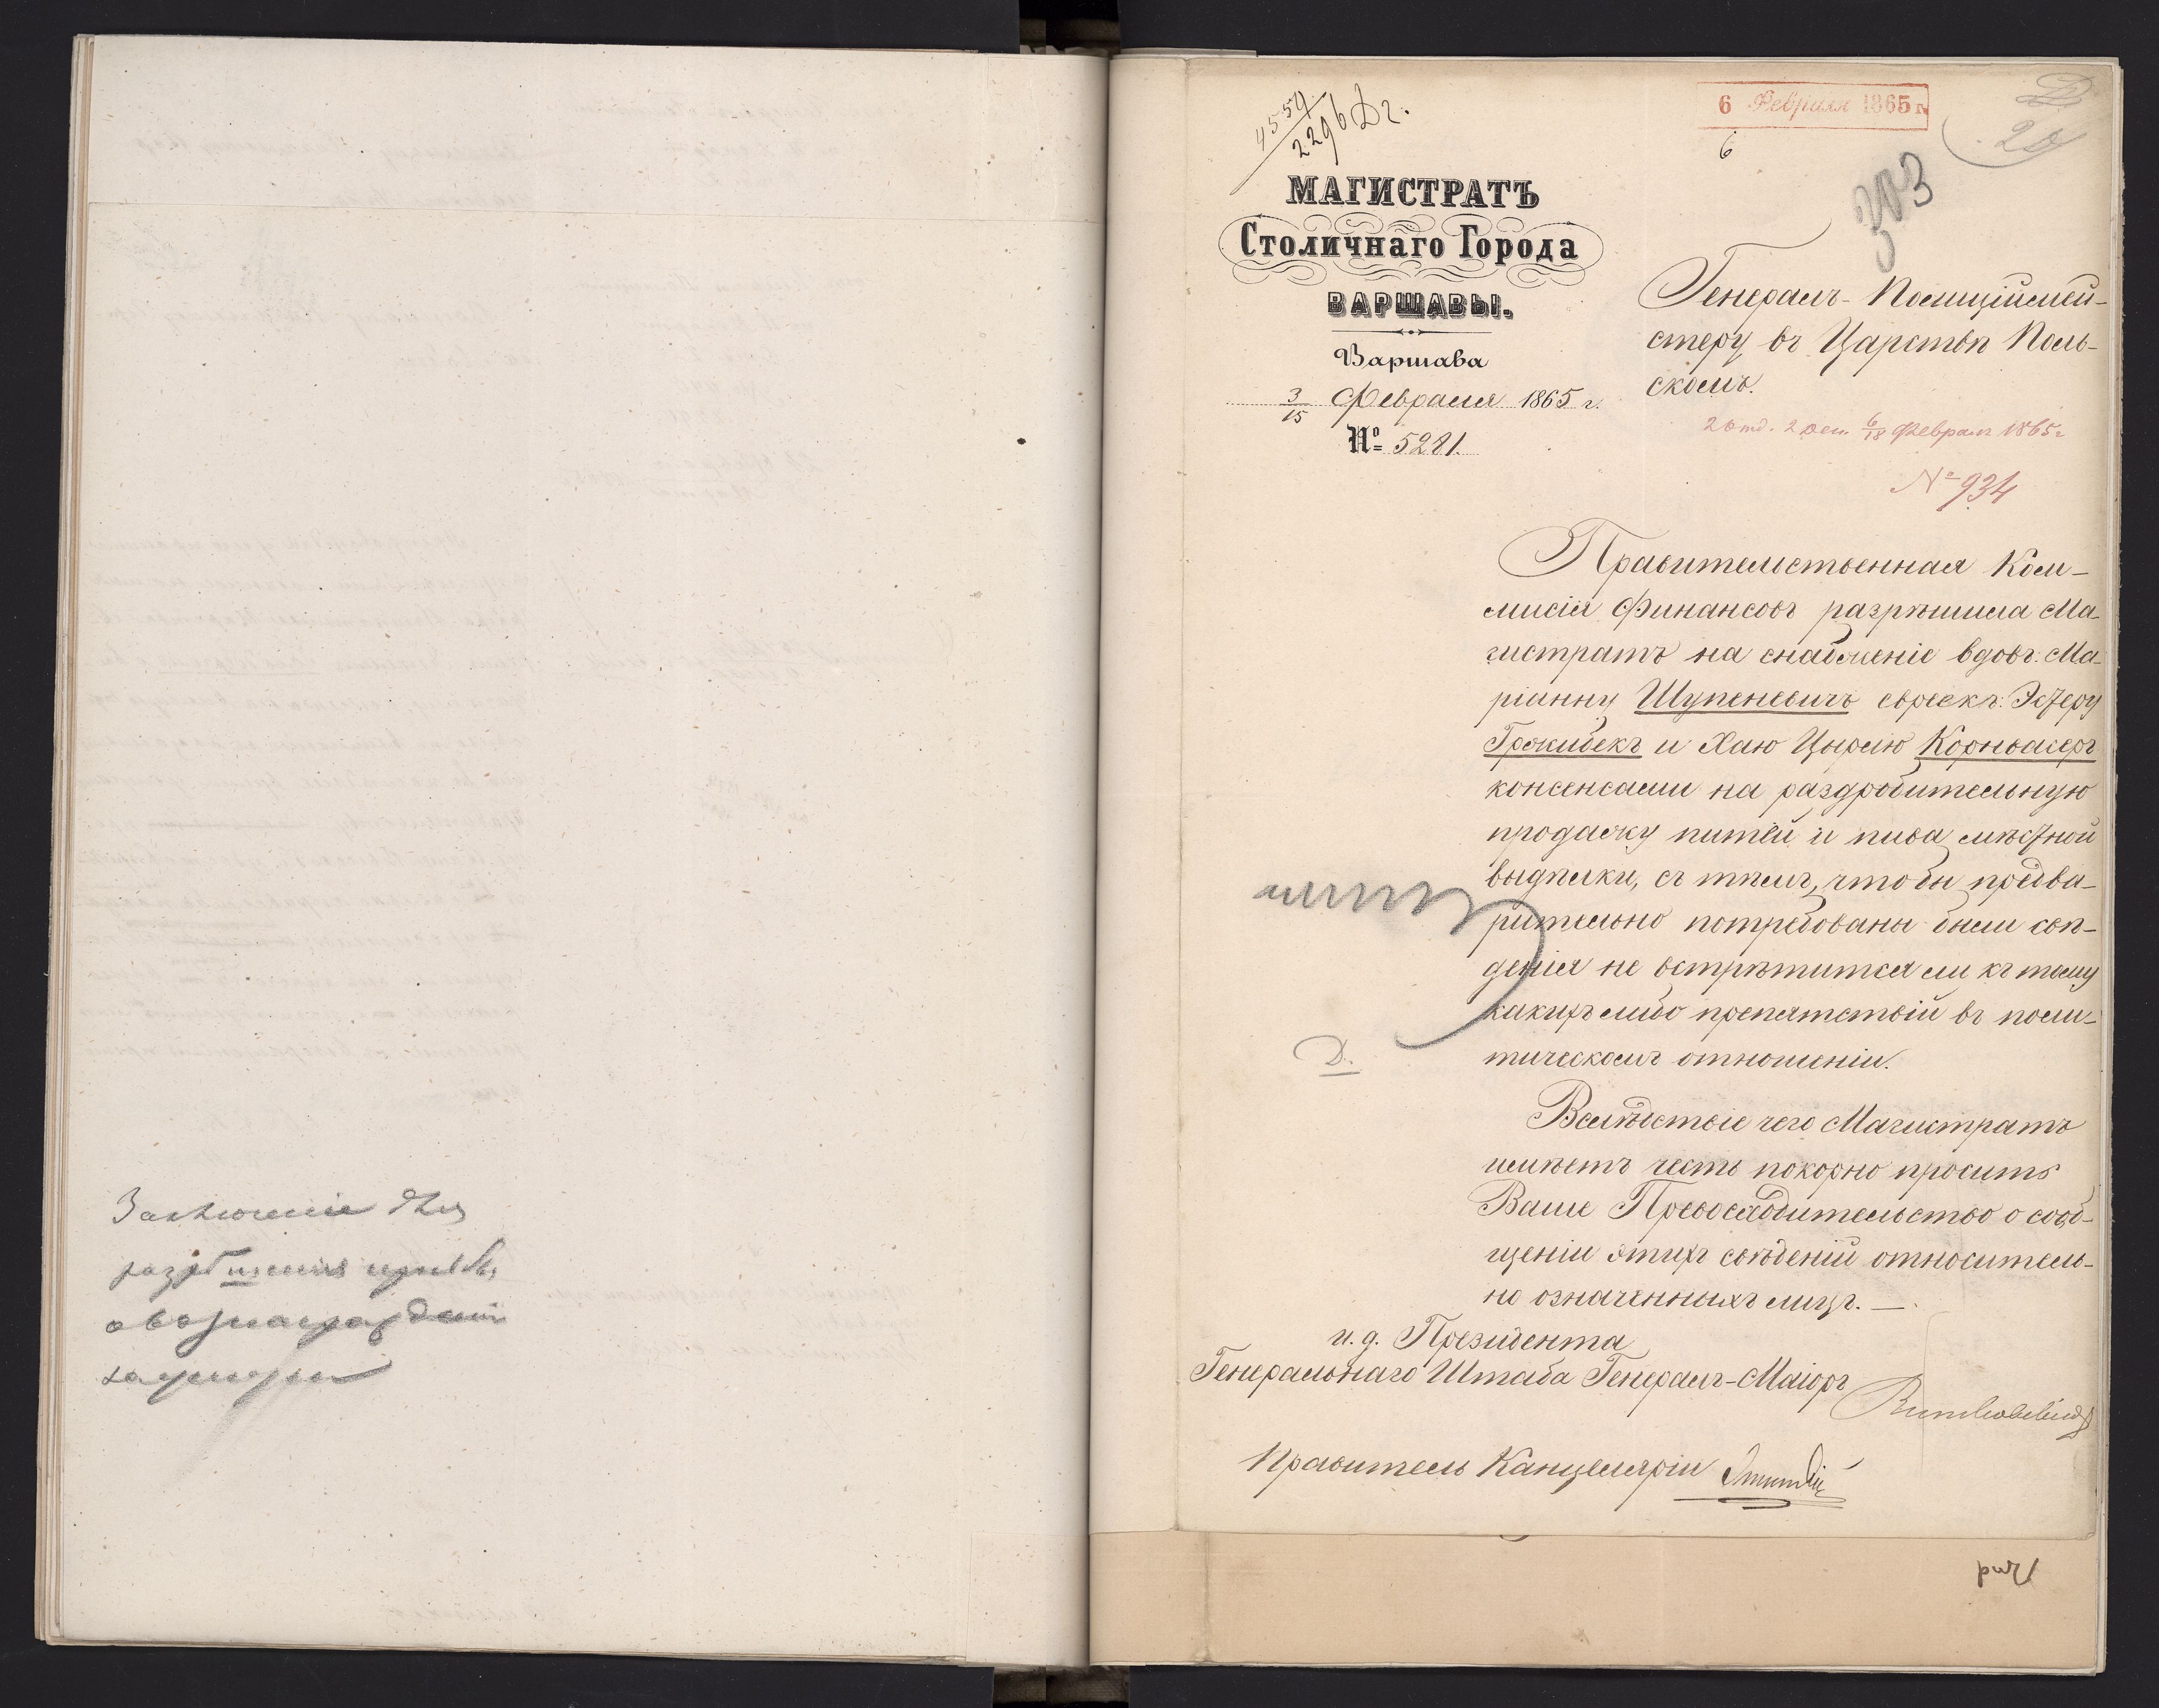 Заключеніе для
4559
2296 Дг.
6 Февраля 1865 г.
6
303
МАГИСТРАТЪ
Столичнаго Города
ВАРШАВЫ.
Варшава
3/15 Февраля 1865 г.
№ 5281.
Генералъ-Полиціймей-
стеру въ Царствѣ Поль-
скомъ.
2 отд. 2 дел. 6/18 Февраля 1865 г
№ 934
Правительственная Ком-
мисія Финансовъ разрѣшила Ма-
гистратъ на снабженіе вдовъ: Ма-
ріанну Шупеневичъ евреекъ: Эстеру
Гросисбекъ и Хаю Цырлю Корнвасеръ
консенсами на раздробительную
продажу питей и пива мѣстной
выдѣлки, съ тѣмъ, чтобы предва-
рительно потребованы были свѣ-
денія не встрѣтится ли къ тому
какихъ либо препятствій въ поли-
тическомъ отношеніи.
Д.
Вслѣдствіе чего Магистратъ
имѣетъ честь покорно просить
Ваше Превосходительство о сооб-
щеніи этихъ свѣденій относитель-
но означенныхъ лицъ. —
и. д. Президента
Генеральнаго Штаба Генералъ-Маіоръ
Витковскій
Правитель Канцеляріи